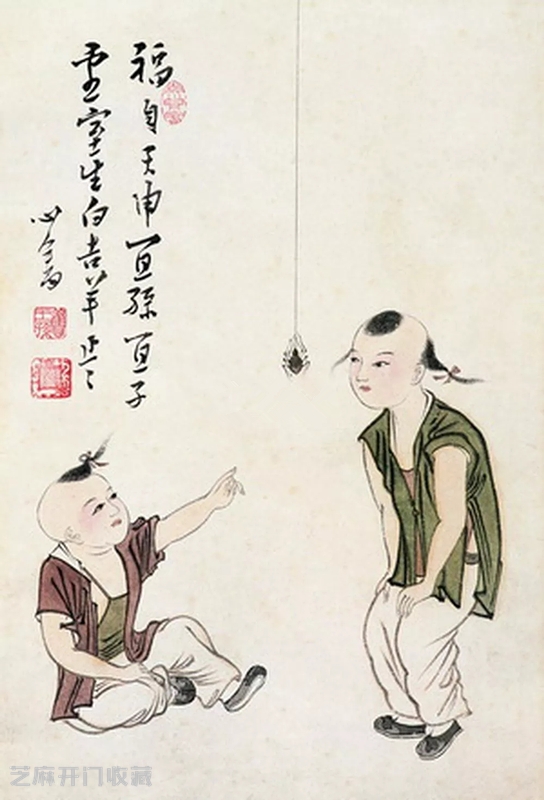 福自天申宜孫宜子
虛室生白吉羊止止
心畬
芝麻开门收藏